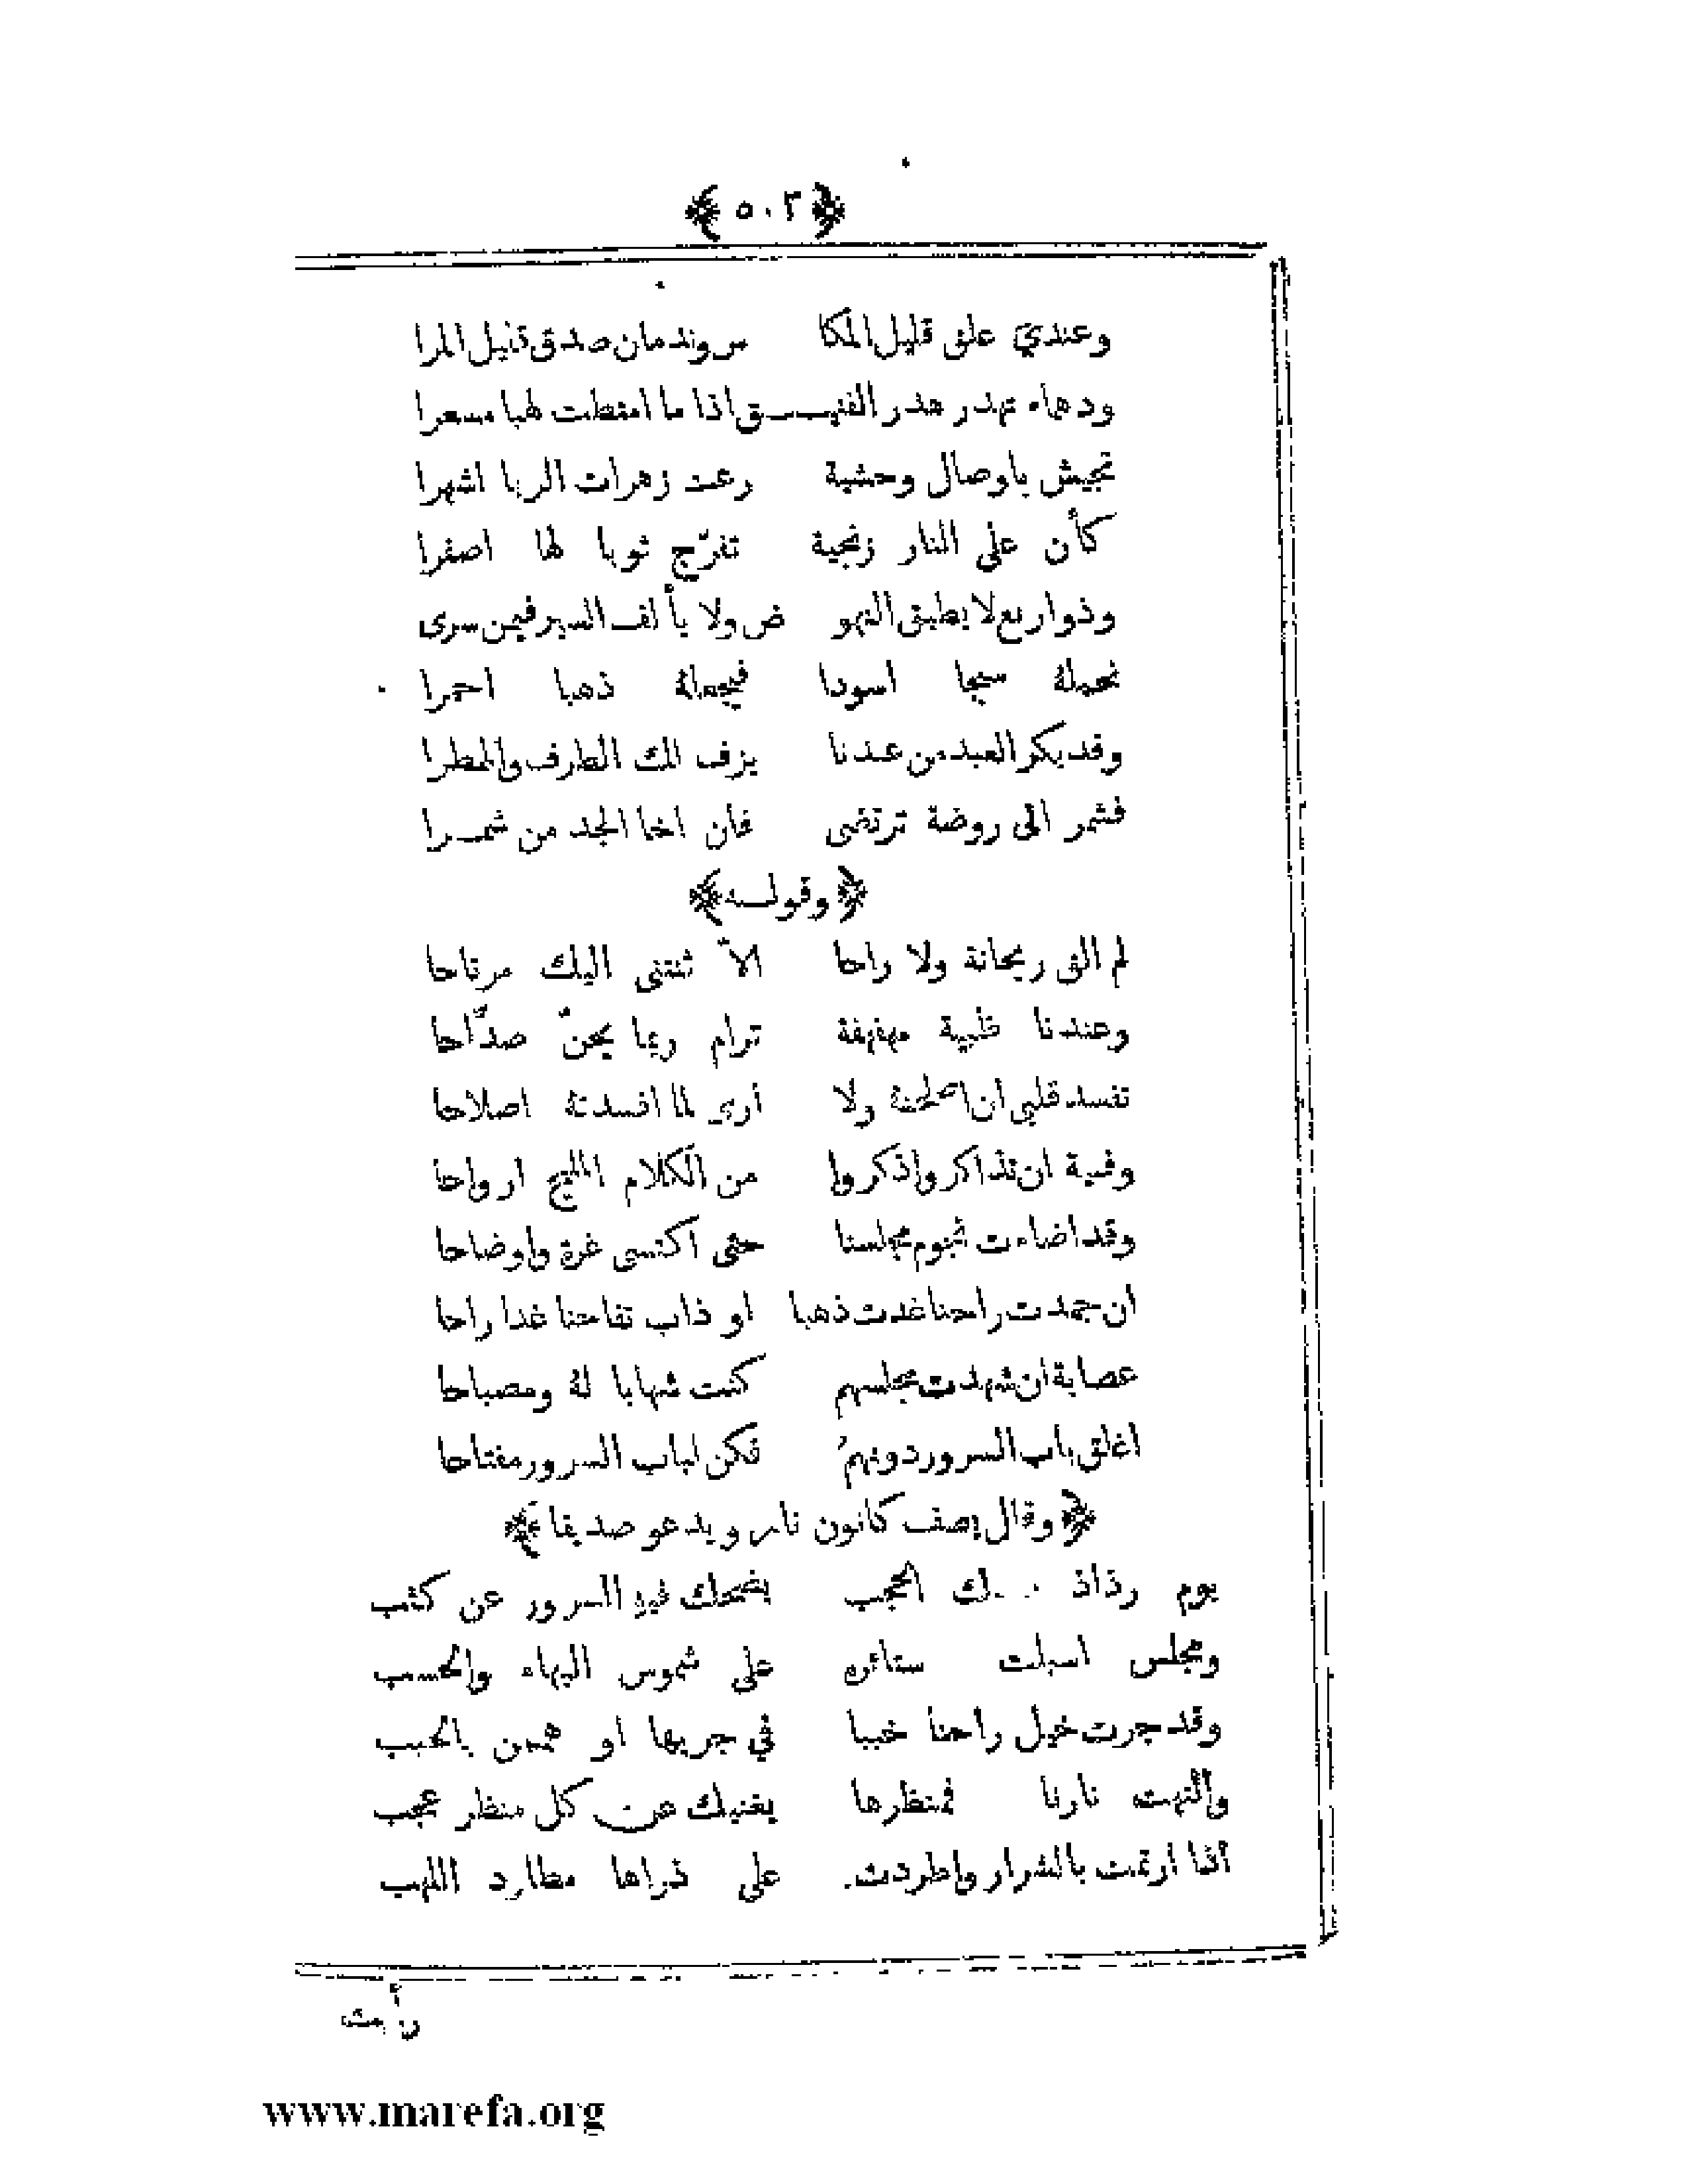 ﴿٥٠٢﴾
وعندي علق قليل المكا س وندمان صدق قليل المرا
ودهاء تهدر هدر الفنيـــق اذا ما امتطت لهبا مسعرا
تجيش باوصال وحشية رعت زهرات الربا اشهرا
كأن على النار زنجية تفرّج ثوبا لها اصفرا
وذواربع لا يطيق النهو ض ولا يألف السير فيمن سرى
نحملهُ سبجا اسودا فيجعلهُ ذهبا احمرا
وقد بكر العبد من عندنا يزف لك الطرف والمطرا
فشمر الى روضة ترتضى فان اخا الجد من شمـرا
﴿وقولـه﴾
لم الق ريحانة ولا راحا الاّ ثنتنى اليك مرتاحا
وعندنا ظبية مهفهفة ترام ريما يجنّ صدّاحا
تفسد قلبي ان اصلحتهُ ولا أرى لما افسدتهُ اصلاحا
وفتية ان تذاكروا ذكروا من الكلام المليح ارواحا
وقد اضاءت نجوم مجلسنا حتى اكتسى غرة واوضاحا
ان جمدت راحنا غدت ذهبا او ذاب تفاحنا غدا راحا
عصابة ان شهدت مجلسهم كنت شهابا لهُ ومصباحا
اغلق باب السرور دونهمُ فكن لباب السرور مفتاحا
﴿وقال يصف كانون نار ويدعو صديقا﴾
يوم رذاذ الحجب يضحك فيهِ السرور عن كثب
ومجلس اسبلت ستائره على شموس البهاء والحسب
وقد جرت خيل راحنا خببا في جريها او هممن بالخبب
والتهبت نارنا فمنظرها يغنيك عن كل منظر عجب
اذا ارتمت بالشرار واطردت على ذراها مطارد اللهب
رأيت
www.marefa.org